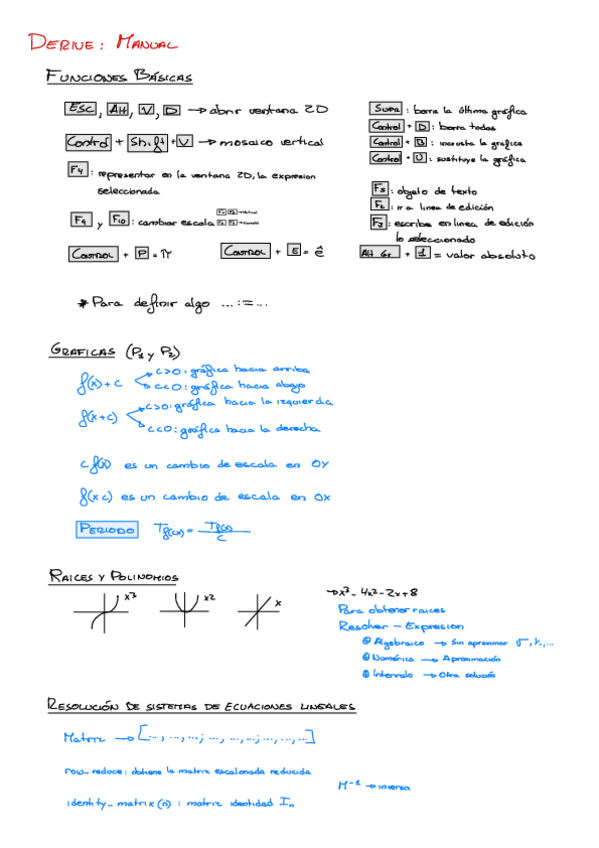 DERIVE: MANUAL
FUNCIONES BÁSICAS
ESC, Alt, V, D → abrir ventana 2D
Control + Shift + V → mosaico vertical
F4: representar en la ventana 2D, la expresion
seleccionada
F9 y F10: cambiar escala
CONTROL + P = π
CONTROL + E = ê
Supr: borra la última gráfica
Control + D: borra todas
Control + B: incrusta la grafica
Control + U: sustituye la gráfica
F5: objeto de texto
F2: ir a linea de edición
F3: escribe en linea de edición
lo seleccionado
Alt Gr + 1 = valor absoluto
* Para definir algo ... := ...
GRAFICAS (P1 y P2)
f(x)+c
c>0: gráfica hacia arriba
c<0: gráfica hacia abajo
f(x+c)
c>0: gráfica hacia la izquierda
c<0: gráfica hacia la derecha
c f(x) es un cambio de escala en OY
f(x c) es un cambio de escala en OX
PERIODO T f(cx) = T f(x) / c
RAICES Y POLINOMIOS
x³ x² x
→ x³ - 4x² - 2x + 8
Para obtener raices
Resolver - Expresion
Algebraico → Sin aproximar √, ½, ...
Numérico → Aproximación
Intervalo → Otra solución
RESOLUCIÓN DE SISTEMAS DE ECUACIONES LINEALES
Matriz → [..., ..., ...; ..., ..., ...; ..., ..., ...]
row_reduce: obtiene la matriz escalonada reducida
M⁻¹ → inversa
identity_matrix (n): matriz identidad In